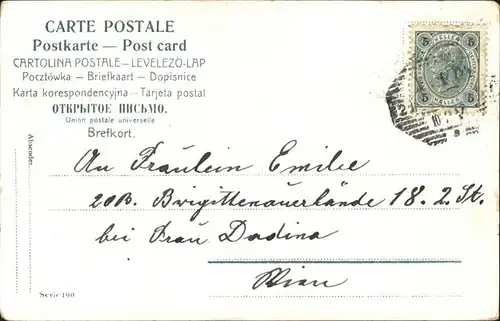 CARTE POSTALE
Postkarte — Post card
CARTOLINA POSTALE — LEVELEZÖ-LAP
Pocztówka — Briefkaart — Dopisnice
Karta korespondencyjna — Tarjeta postal
ОТКРЫТОЕ ПИСЬМО.
Union postale universelle
Brefkort.
5 5
KELLER
5 HELLER 5
Absender.
An Fräulein Emilie
20B. Brigittenauerlände 18. 2. St.
bei Frau Dadina
Wien
Serie 190